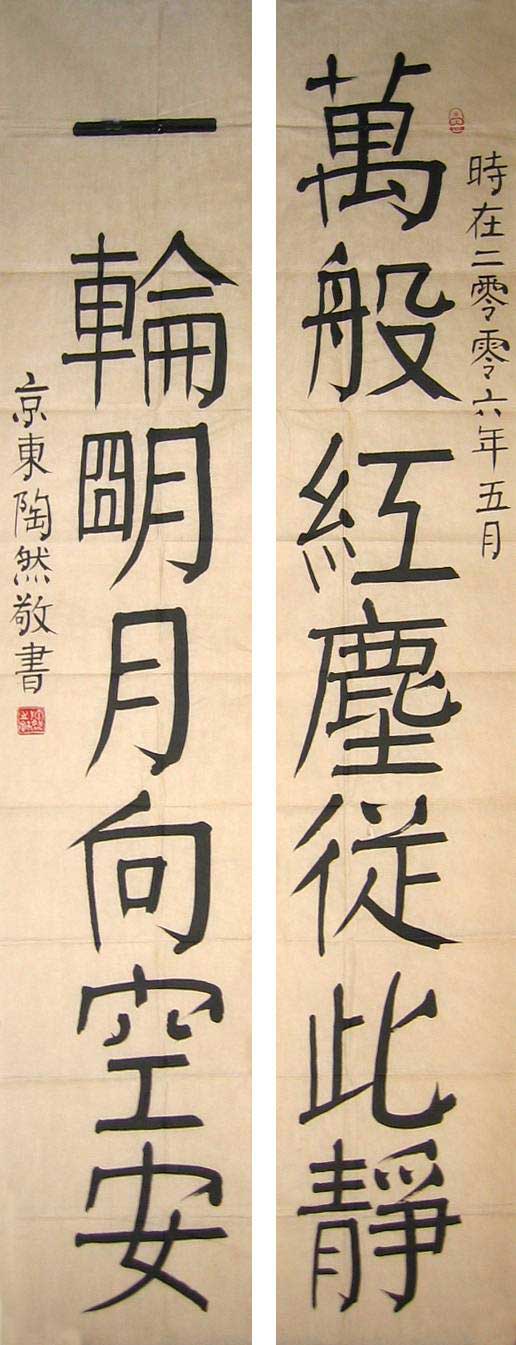 時在二零零六年五月
萬般紅塵従此靜
一輪朙月向空安
京東陶然敬書